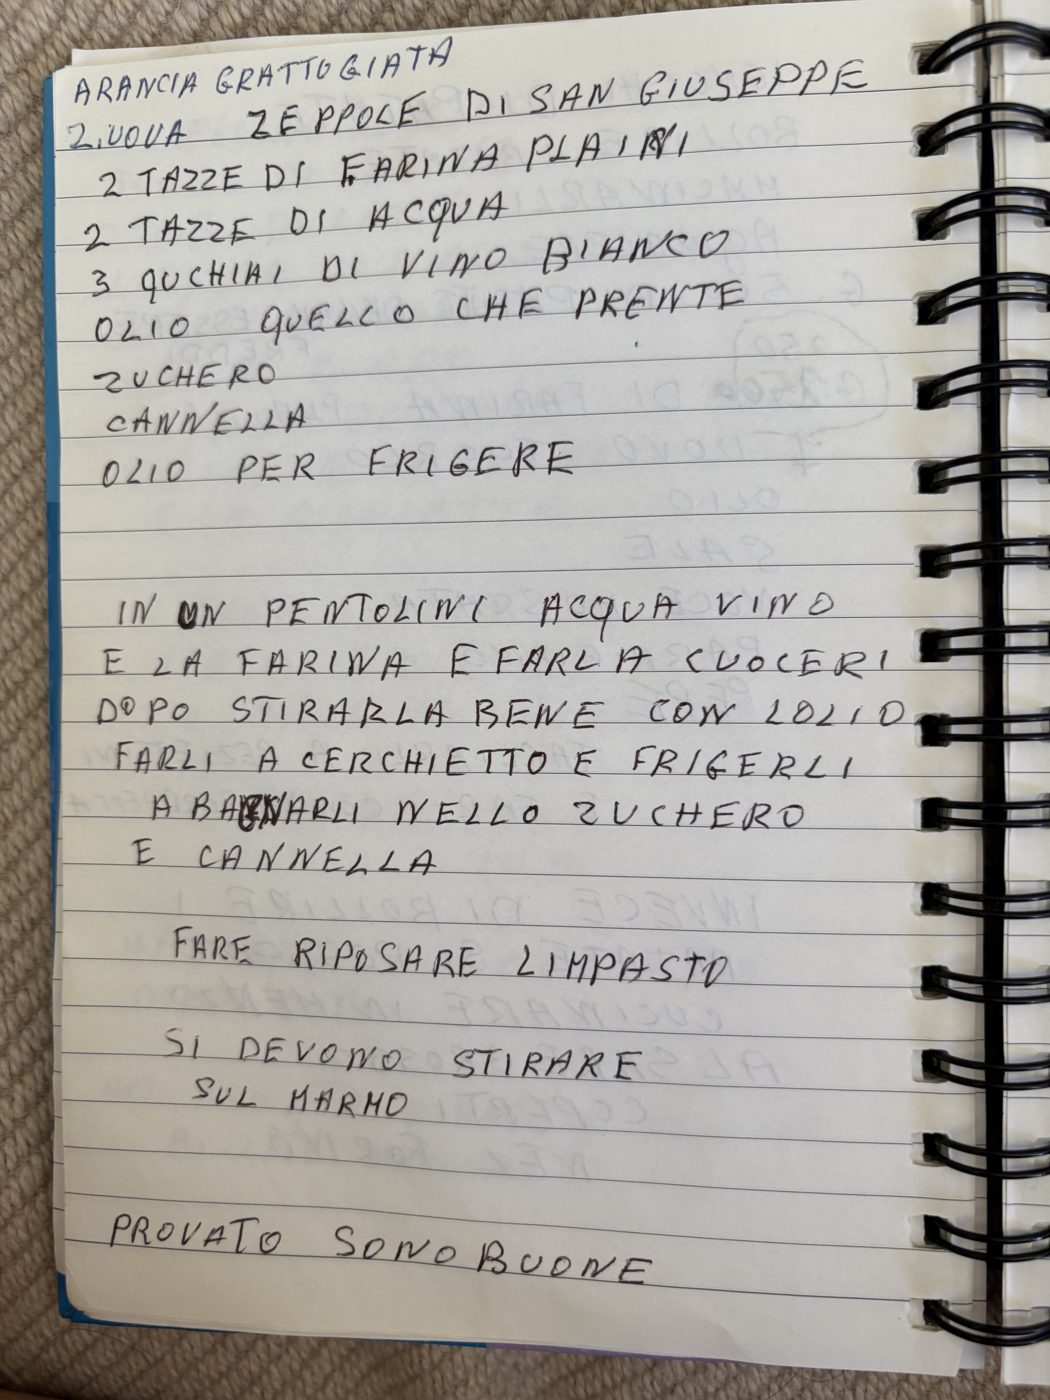 ARANCIA GRATTOGIATA
2.UOVA ZEPPOLE DI SAN GIUSEPPE
2 TAZZE DI FARINA PLAINI
2 TAZZE DI ACQUA
3 QUCHIAI DI VINO BIANCO
OLIO QUELLO CHE PRENTE
ZUCHERO
CANNELLA
OLIO PER FRIGERE
IN UN PENTOLINI ACQUA VINO
E LA FARINA E FARLA CUOCERI
DOPO STIRARLA BENE CON LOLIO
FARLI A CERCHIETTO E FRIGERLI
A BAGNARLI NELLO ZUCHERO
E CANNELLA
FARE RIPOSARE LIMPASTO
SI DEVONO STIRARE
SUL MARMO
PROVATO SONO BUONE